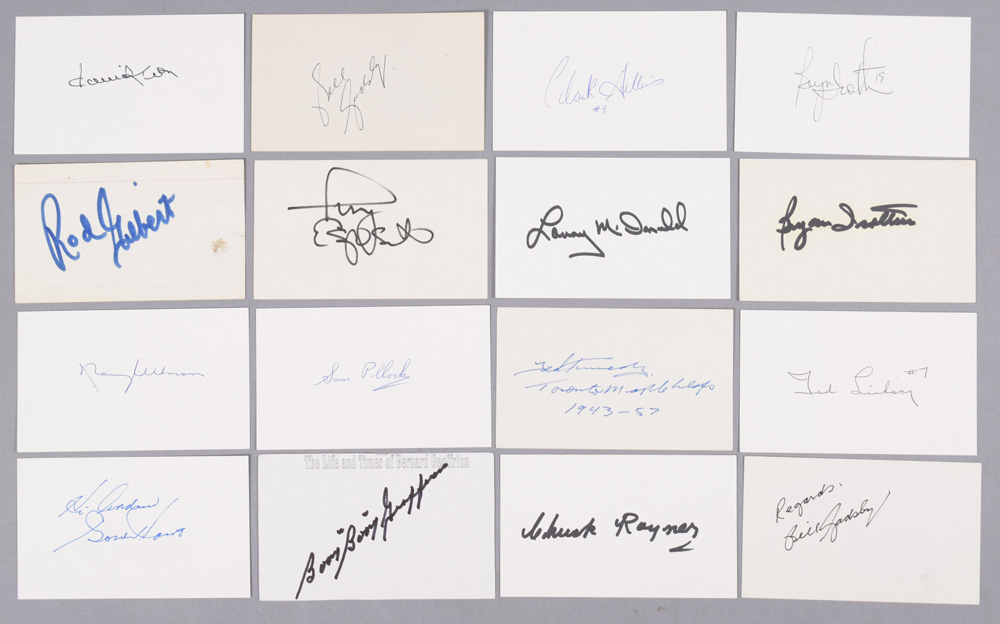 Bill Gadsby
Clark Gillies
#9
Bryan Trottier 19
Rod Gilbert
Tony
Esposito
Lanny McDonald
Bryan Trottier
Harry Watson
Sam Pollock
Ted Kennedy
Toronto Maple Leafs
1943-57
Ted Lindsay #7
Gordie Howe
The Life and Times of Bernard Geoffrion
"Boom" "Boom" Geoffrion
Chuck Rayner
Regards.
Bill Gadsby